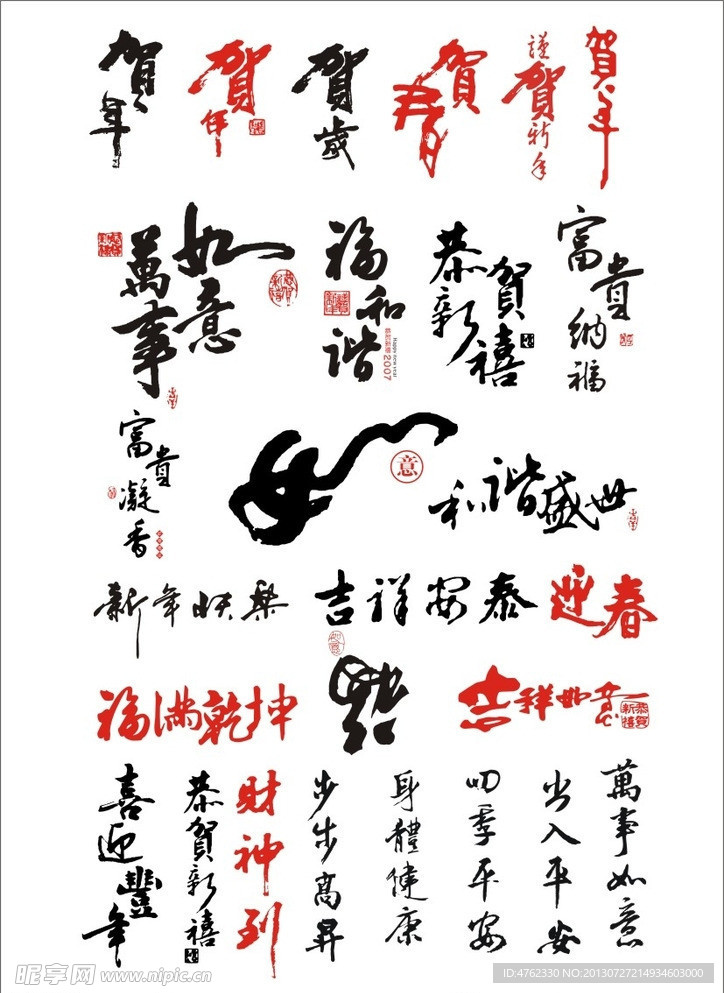 賀年
賀年
賀歲
賀春
謹賀新年
賀年
萬事如意
福和谐
恭贺新禧
Happy new year
2007
恭賀新禧
富貴納福
富貴凝香
如
意
和谐盛世
新年快樂
吉祥安泰
迎春
福满乾坤
吉祥如意
恭賀新禧
喜迎豐年
恭賀新禧
財神到
步步高昇
身體健康
四季平安
出入平安
萬事如意
昵享网 www.nipic.cn
ID:4762330 NO:20130727214934603000